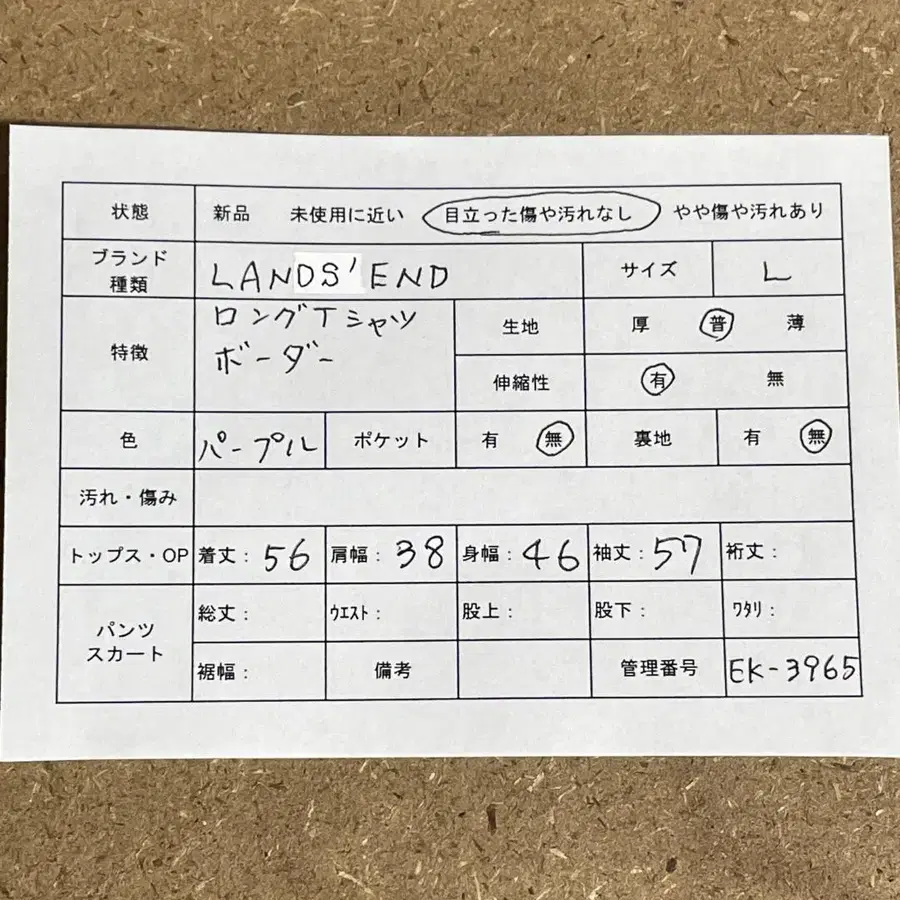 状態 新品 未使用に近い 目立った傷や汚れなし やや傷や汚れあり
ブランド
種類 LANDS'END サイズ L
特徴 ロングTシャツ
ボーダー
生地 厚 普 薄
伸縮性 有 無
色 パープル ポケット 有 無 裏地 有 無
汚れ・傷み
トップス・OP 着丈: 56 肩幅: 38 身幅: 46 袖丈: 57 裄丈:
パンツ
スカート
総丈: ウエスト: 股上: 股下: ワタリ:
裾幅: 備考 管理番号 EK-3965